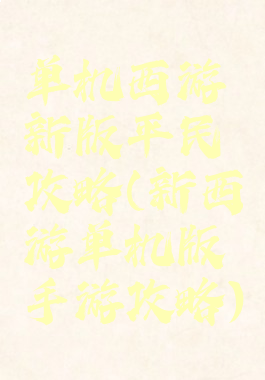 单机西游
新版平民
攻略(新西
游单机版
手游攻略)